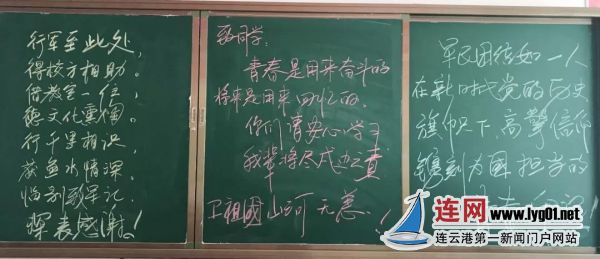 行军至此处,
得校方相助。
借教室一住,
德文化熏陶。
行千里相识,
获鱼水情深。
临别敬军礼,
挥表感谢!
致同学:
青春是用来奋斗的
将来是用来回忆的。
你们请安心学习
我辈将尽戍边之责
卫祖国山河无恙!
军民团结如一人
在新时代党的历史
旗帜下,高擎信仰
镌刻为国担当的
连网 www.lyg01.net
连云港第一新闻门户网站